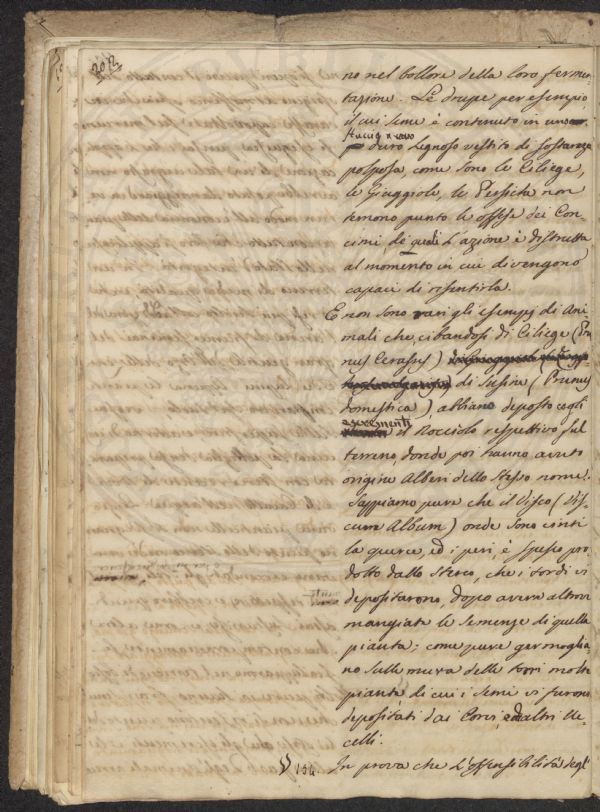 202
no nel bollore della loro fermen-
tazione. Le drupe per esempio,
il cui seme è contenuto in uno
duro legnoso vestito di sostanza
polposa, come sono le Ciliege,
le Giuggiole, le Persiche non
temono punto le offese dei Con-
cimi, de' quali l'azione è distrutta
al momento in cui divengono
capaci di risentirla.
E non sono rari gli esempj di Ani-
mali che, cibandosi di Ciliege (Pru-
nus Cerasus)
di Susine (Prunus
domestica), abbiano deposto cogli
escrementi
il Nocciolo respettivo sul
terreno, donde poi hanno avuto
origine Alberi dello stesso nome.
Sappiamo pure che il Visco (Vis-
cum Album) onde sono cinti
la querce, ed i peri, è spesso pro-
dotto dallo sterco, che i tordi vi
depositarono, dopo avere altrove
mangiate le semenze di quella
pianta; come pure germoglia-
no sulle mura delle torri molte
piante di cui i semi vi furono
depositati dai Corvi, ed altri Uc-
celli.
§ 154. In prova che l'offensibilità degl'